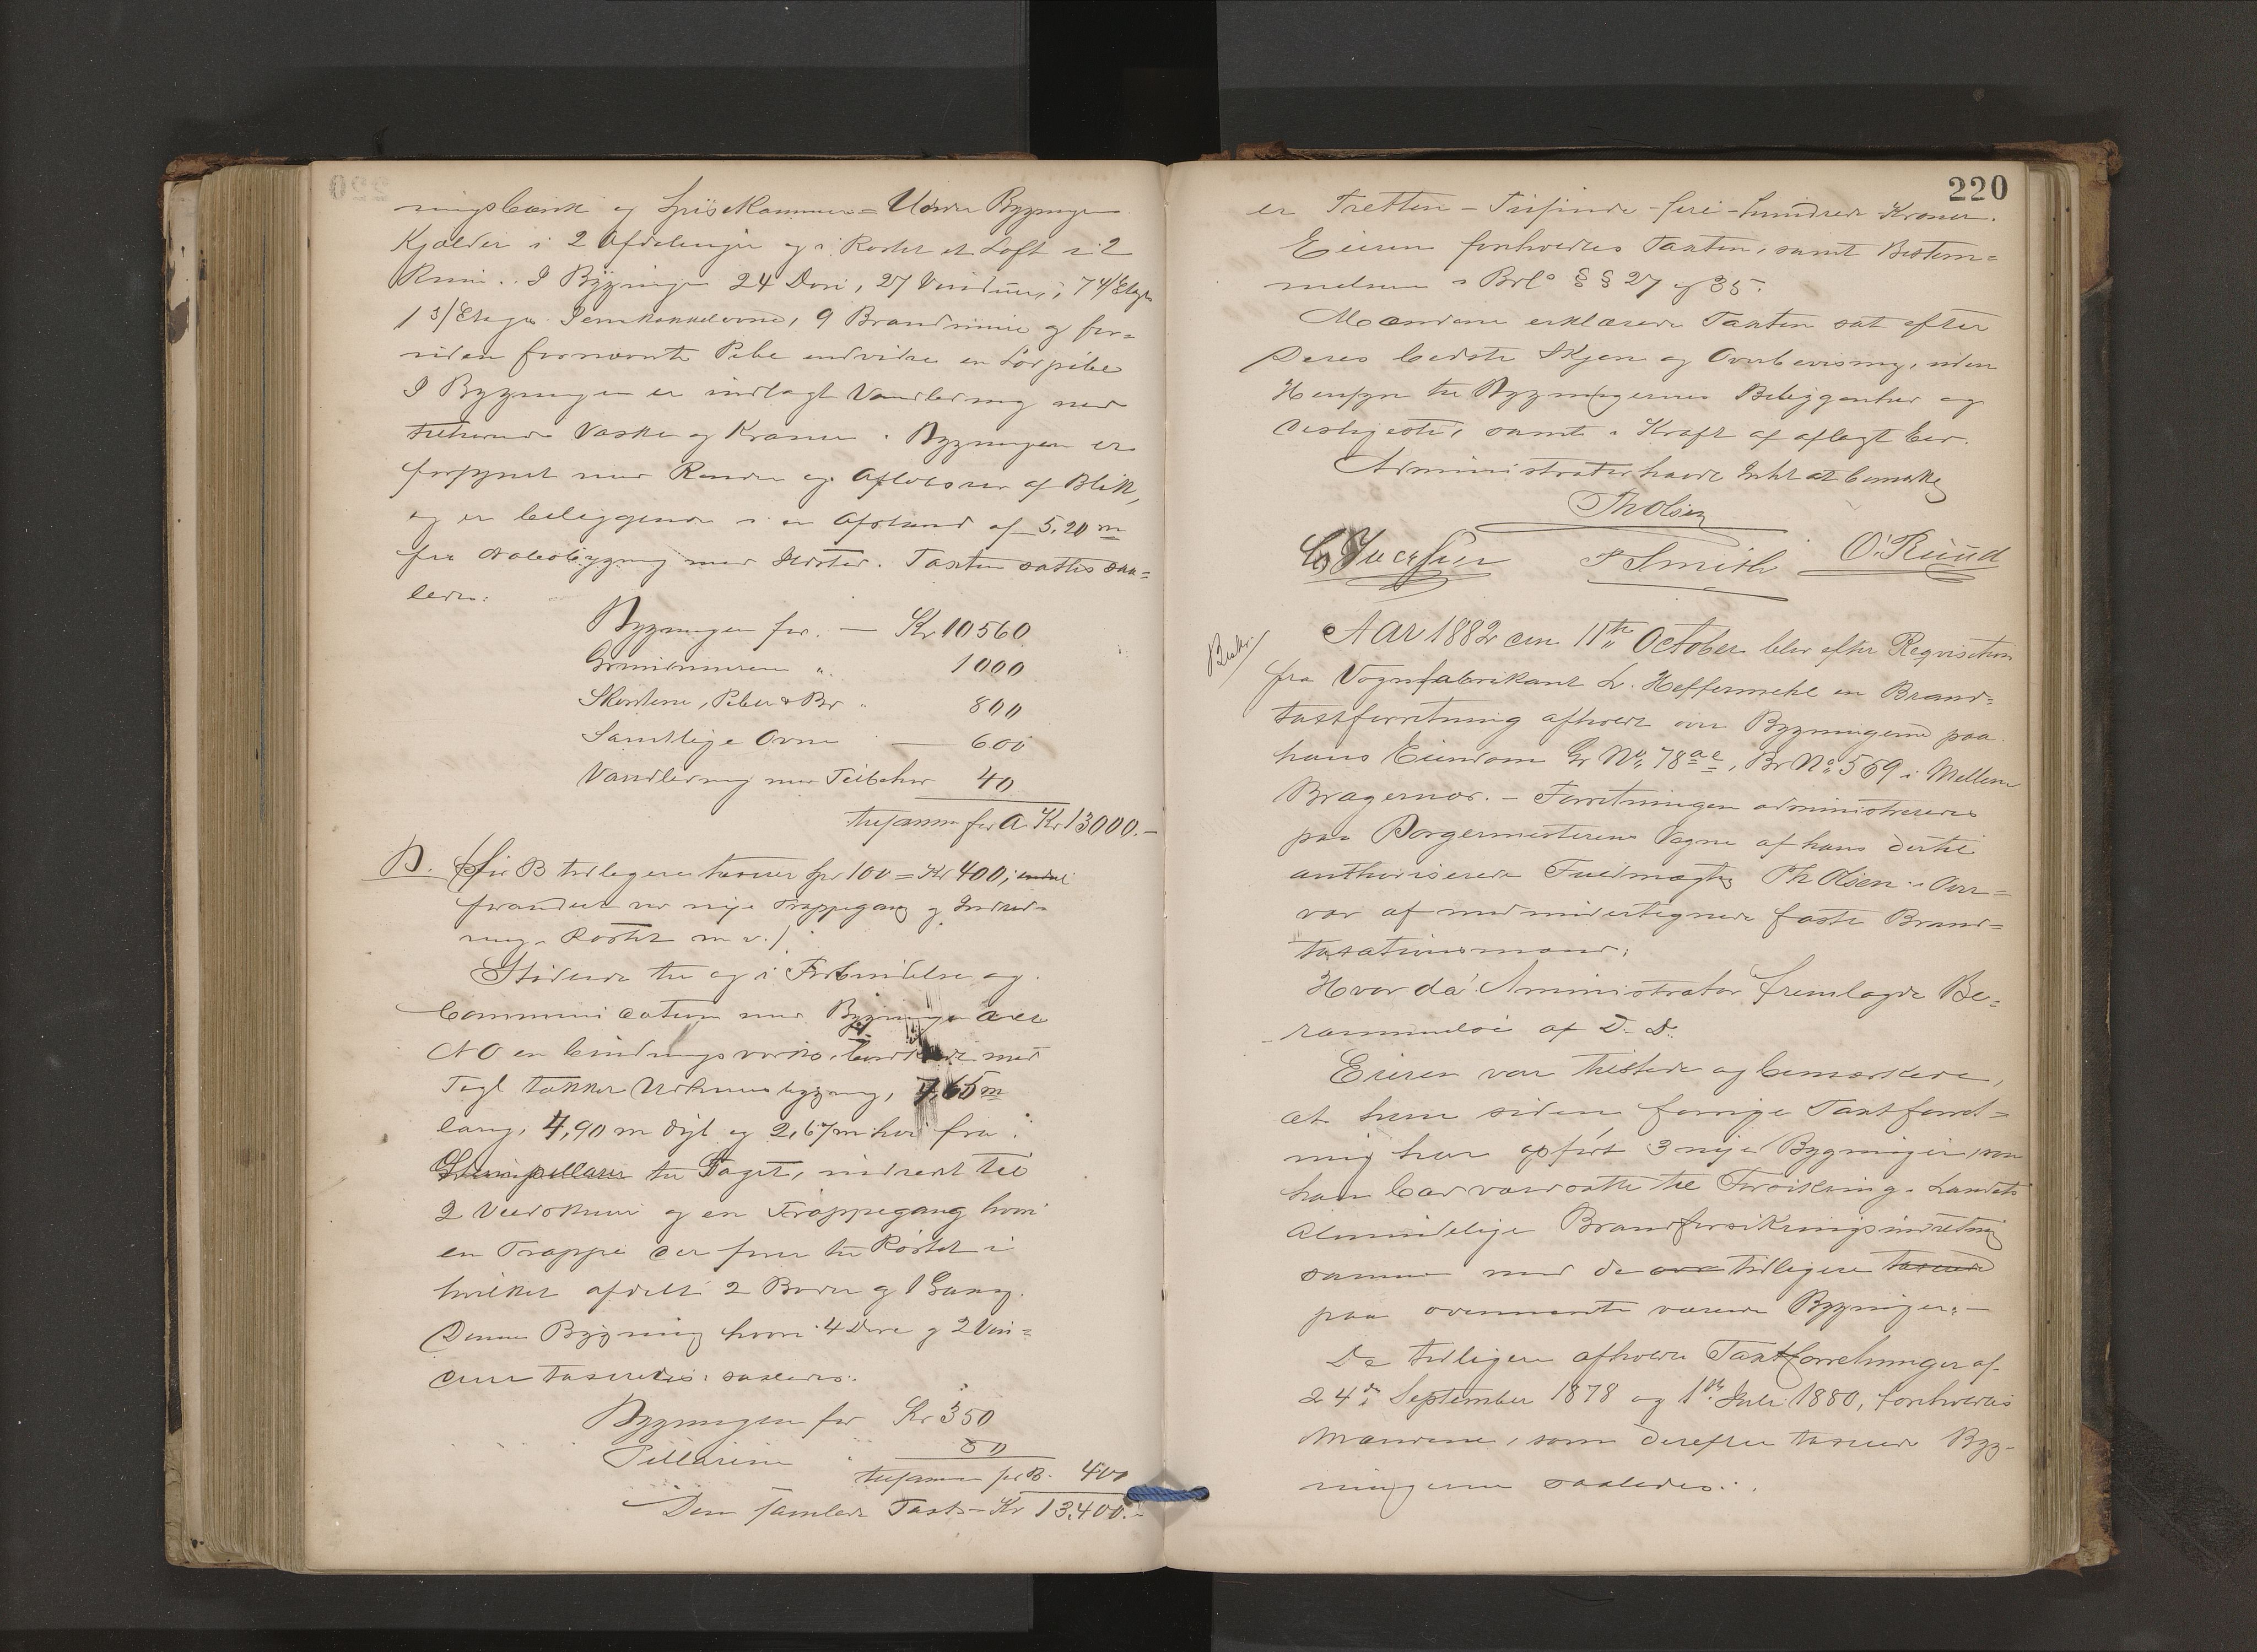 ningsbænk og Spisekammer = Under Bygningen
Kjælder i 2 Afdelinger og i Røstet et Loft i 2
Rum. I Bygningen 24 Døre, 27 Vinduer, 7 4/Etages
1 3/Etages Jernkakkelovne, 9 Brandmure og for-
uden fornævnte Pibe endvidere en Løspibe
I Bygningen er indlagt Vandledning med
tilhørende Vaske og Kraner. Bygningen er
forsynet med Render og Afløbsrør af Blik,
og er beliggende i en Afstand af 5,20 m
fra Nabobygning mod Sydøst. Taxten sattes saa=
ledes:
Bygningen for. — Kr 10560
Grundmuren " 1000
Skorstene, Piber & Br " 800
Samtlige Ovne — 600
Vandledning med Tilbehør 40
tilsammen for A Kr 13000.-
B. (for B tidligere taxeret Spr 100 = Kr 400;
forandret ved nye Trappegang og Indred-
ning i Røstet m. v.)
Stødende til og i Forbindelse og
Communication med Bygningen A er
NO en bindingsværks, bordklædt med
Tegl tækket Udhusbygning, 7,65 m
lang, 4,90 m dyb og 2,67 m høi fra
Steenpillarer til Taget, indredt til
2 Vedskur og en Trappegang hvori
en Trappe der fører til Røstet i
hvilket afdelt 2 Boder og 1 Gang.
Denne Bygning hvori 4 Døre og 2 Vin=
duer taxeredes saaledes:
Bygningen for Kr 350
Pillarerne " 50
tilsammen for B. 400
Den samlede Taxt - Kr 13.400.-
220
er Tretten - Tusinde - fire - hundrede Kroner.
Eieren forholdtes Taxten, samt Bestem=
melsen i Brl. § § 27 og 35.
Mændene erklærede Taxten sat efter
deres bedste Skjøn og Overbevisning, uden
Hensyn til Bygningernes Beliggenhed og
deslige, samt i Kraft af aflagt Eed.
Administrator havde Intet at bemærke
Th Olsen
P Smith O. Ruud
Aar 1882 den 11te October blev efter Reqvisition
fra Vognfabrikant L. Heffermehl en Brand=
taxtforretning afholdt over Bygningerne paa
hans Eiendom Gr No. 78 ae, Br No. 569 i Mellem
Bragernæs. - Forretningen administreredes
paa Borgermesterens Vegne af hans dertil
authoriserede Fuldmægtig Th Olsen i Over=
vær af medundertegnede faste Brand=
taxationsmænd;
Hvor da Aministrator fremlagde Be=
rammelse af D. D.
Eieren var tilstede og bemærkede,
at han siden forrige Taxtforret=
ning har opført 3 nye Bygninger, som
han bad værdsatte til Forsikring i Landets
almindelige Brandforsikringsindretning
sammen med de tidligere taxerede
paa ovennævnte værende Bygninger. -
De tidligere afholdte Taxtforretninger af
24de September 1878 og 1ste Juli 1880, forholdtes
Mændene, som derefter taxerede Byg-
ningerne saaledes: